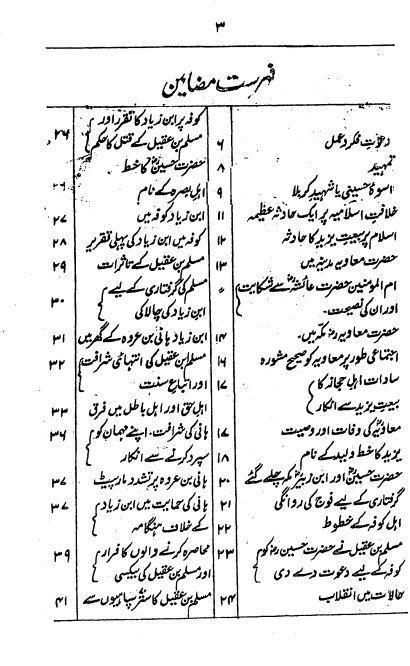 ۳
فہرست مضامین
دعوت فکر و عمل ۶
تمہید ۸
اسوۂ حسینی یا شہید کربلا ۹
خلافت اسلامیہ پر ایک حادثہ عظیمہ ۱۱
اسلام پر بیعت یزید کا حادثہ ۱۲
حضرت معاویہ مدینہ میں ۱۳
ام المومنین حضرت عائشہؓ سے شکایت
اور ان کی نصیحت۔
حضرت معاویہؓ مکہ میں۔ ۱۴
اجتماعی طور پر معاویہ کو صحیح مشورہ ۱۶
سادات اہل حجاز کا ۱۷
بیعت یزید سے انکار
معاویہؓ کی وفات اور وصیت ۱۷
یزید کا خط ولید کے نام ۱۸
حضرت حسینؓ اور ابن زبیرؓ مکہ چلے گئے ۲۰
گرفتاری کے لیے فوج کی روانگی ۲۱
اہل کوفہ کے خطوط ۲۲
مسلم بن عقیل نے حضرت حسینؓ کو ۲۳
کوفہ کے لیے دعوت دے دی
حالات میں انقلاب ۲۴
کوفہ پر ابن زیاد کا تقرر اور
مسلم بن عقیل کے قتل کا حکم ۲۶
حضرت حسینؓ کا خط
اہل بصرہ کے نام ۲۶
ابن زیاد کوفہ میں ۲۷
کوفہ میں ابن زیاد کی پہلی تقریر ۲۸
مسلم بن عقیل کے تاثرات ۲۹
مسلم کی گرفتاری کے لیے
ابن زیاد کی چالاکی ۳۰
ابن زیاد ہانی بن عروہ کے گھر میں ۳۱
مسلم بن عقیل کی انتہائی شرافت ۳۲
اور اتباع سنت
اہل حق اور اہل باطل میں فرق ۳۳
ہانی کی شرافت۔ اپنے مہمان کو ۳۶
سپرد کرنے سے انکار
ہانی بن عروہ پر تشدد مار پیٹ ۳۷
ہانی کی حمایت میں ابن زیاد ۳۷
کے خلاف ہنگامہ
محاصرہ کرنے والوں کا فرار ۳۹
اور مسلم بن عقیل کی بیکسی
مسلم بن عقیل کا ستر سپاہیوں سے ۴۱